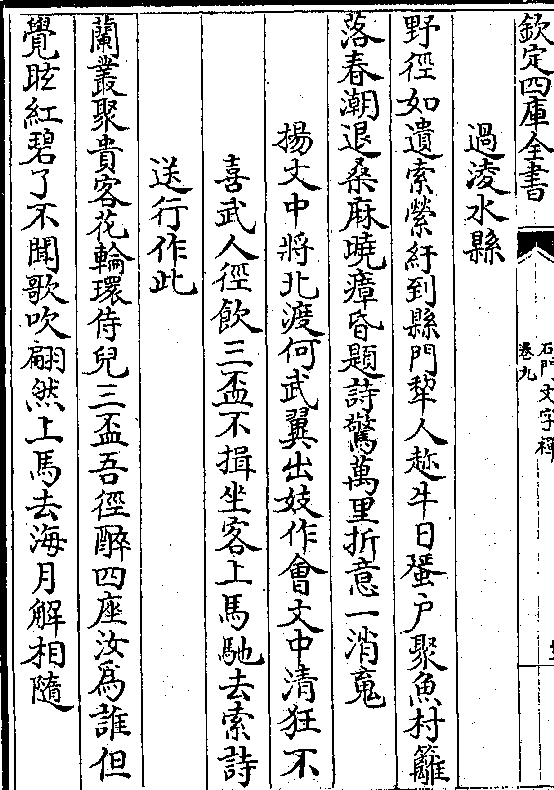 欽定四庫全書
石門文字禪
卷九
過淩水縣
野徑如遺索縈紆到縣門犂人趂牛日蜑户聚魚村籬
落春潮退桑麻曉瘴昏題詩驚萬里折意一消䰟
揚文中將北渡何武翼出妓作會文中清狂不
喜武人徑飲三盃不揖坐客上馬馳去索詩
送行作此
蘭叢聚貴客花輪環侍兒三盃吾徑醉四座汝為誰但
覺眩紅碧了不聞歌吹翩然上馬去海月解相隨